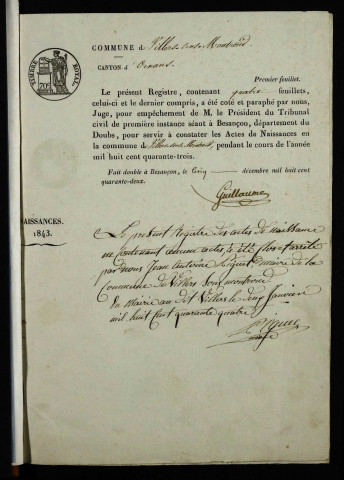 TIMBRE ROYAL
COMMUNE de Villers sous Montrond
CANTON d'Ornans.
Premier feuillet.
Le présent Registre, contenant quatre feuillets,
celui-ci et le dernier compris, a été coté et paraphé par nous,
Juge, pour empêchement de M. le Président du Tribunal
civil de première instance séant à Besançon, département du
Doubs, pour servir à constater les Actes de Naissances en
la commune de Villers sous Montrond, pendant le cours de l'année
mil huit cent quarante-trois.
Fait double à Besançon, le cinq décembre mil huit cent
quarante-deux.
Guillaume
NAISSANCES.
1843.
Le présent Registre des actes de naissance
ne contenant aucuns actes a été clos et arrêté
par nous Jean Antoine Piquet maire de la
Commune de Villers sous montrond
En Mairie au dit Villers le deux Janvier
mil huit cent quarante quatre
Piquet